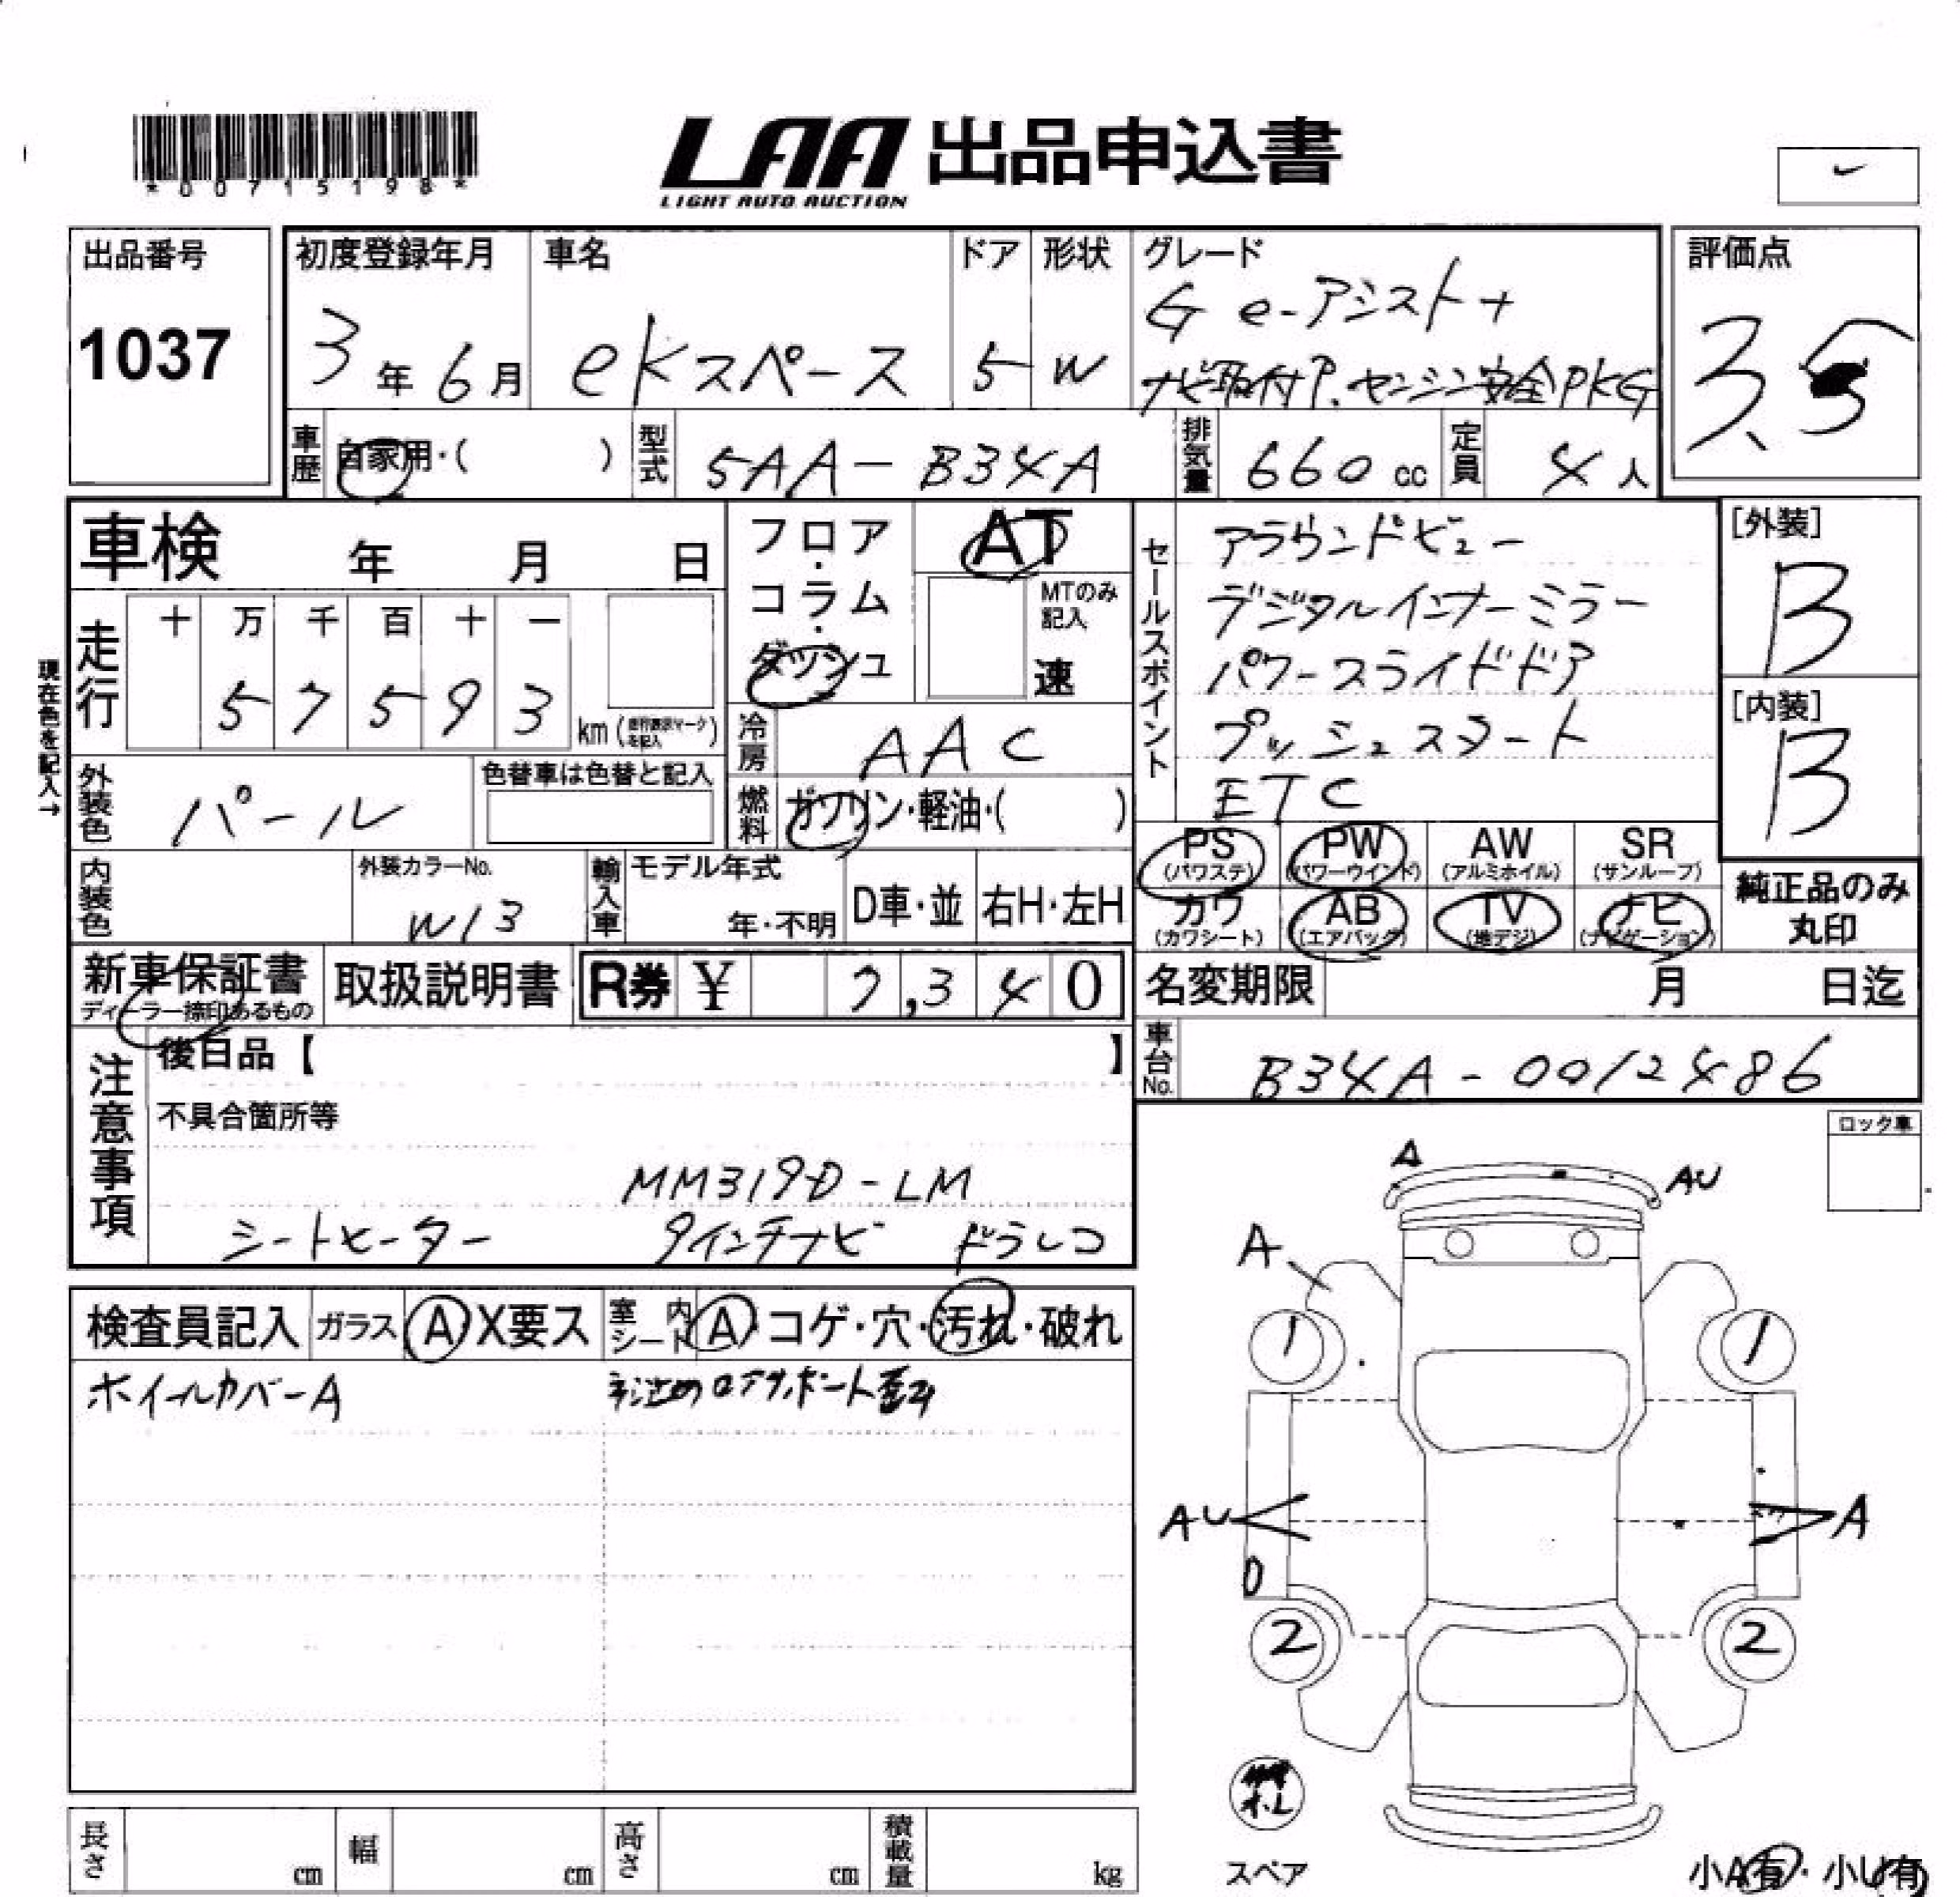 *00715198*
LAA 出品申込書
LIGHT AUTO AUCTION
出品番号
1037
初度登録年月
3年6月
車名
ekスペース
ドア
5
形状
W
グレード
G e-アシスト+
ナビ取付P.センシン安全PKG
評価点
3.5
車歴 自家用・( )
型式 5AA-B34A
排気量 660cc
定員 4人
車検 年 月 日
フロア・コラム・ダッシュ
AT
MTのみ記入
速
セールスポイント
アラウンドビュー
デジタルインナーミラー
パワースライドドア
プッシュスタート
ETC
[外装]
B
[内装]
B
現在色を記入→
走行
十 万 千 百 十 一
5 7 5 9 3
km (走行表示マークを記入)
冷房 AAC
燃料 ガソリン・軽油・( )
外装色 パール
色替車は色替と記入
内装色
外装カラーNo.
W13
輸入車
モデル年式
年・不明
D車・並
右H・左H
PS (パワステ)
PW (パワーウインド)
AW (アルミホイル)
SR (サンルーフ)
カワ (カワシート)
AB (エアバック)
TV (地デジ)
ナビ (ナビゲーション)
純正品のみ
丸印
新車保証書
ディーラー捺印あるもの
取扱説明書
R券 ¥ 7,340
名変期限 月 日迄
車台No. B34A-0012486
注意事項
後日品【 】
不具合箇所等
MM319D-LM
シートヒーター 9インチナビ ドラレコ
ロック車
検査員記入 ガラス A X要ス 室内シート A コゲ・穴・汚れ・破れ
ホイールカバーA
コアサポート歪み
A
AU
A
1
1
AU
A
2
2
スペア
小A有・小U有
長さ cm
幅 cm
高さ cm
積載量 kg